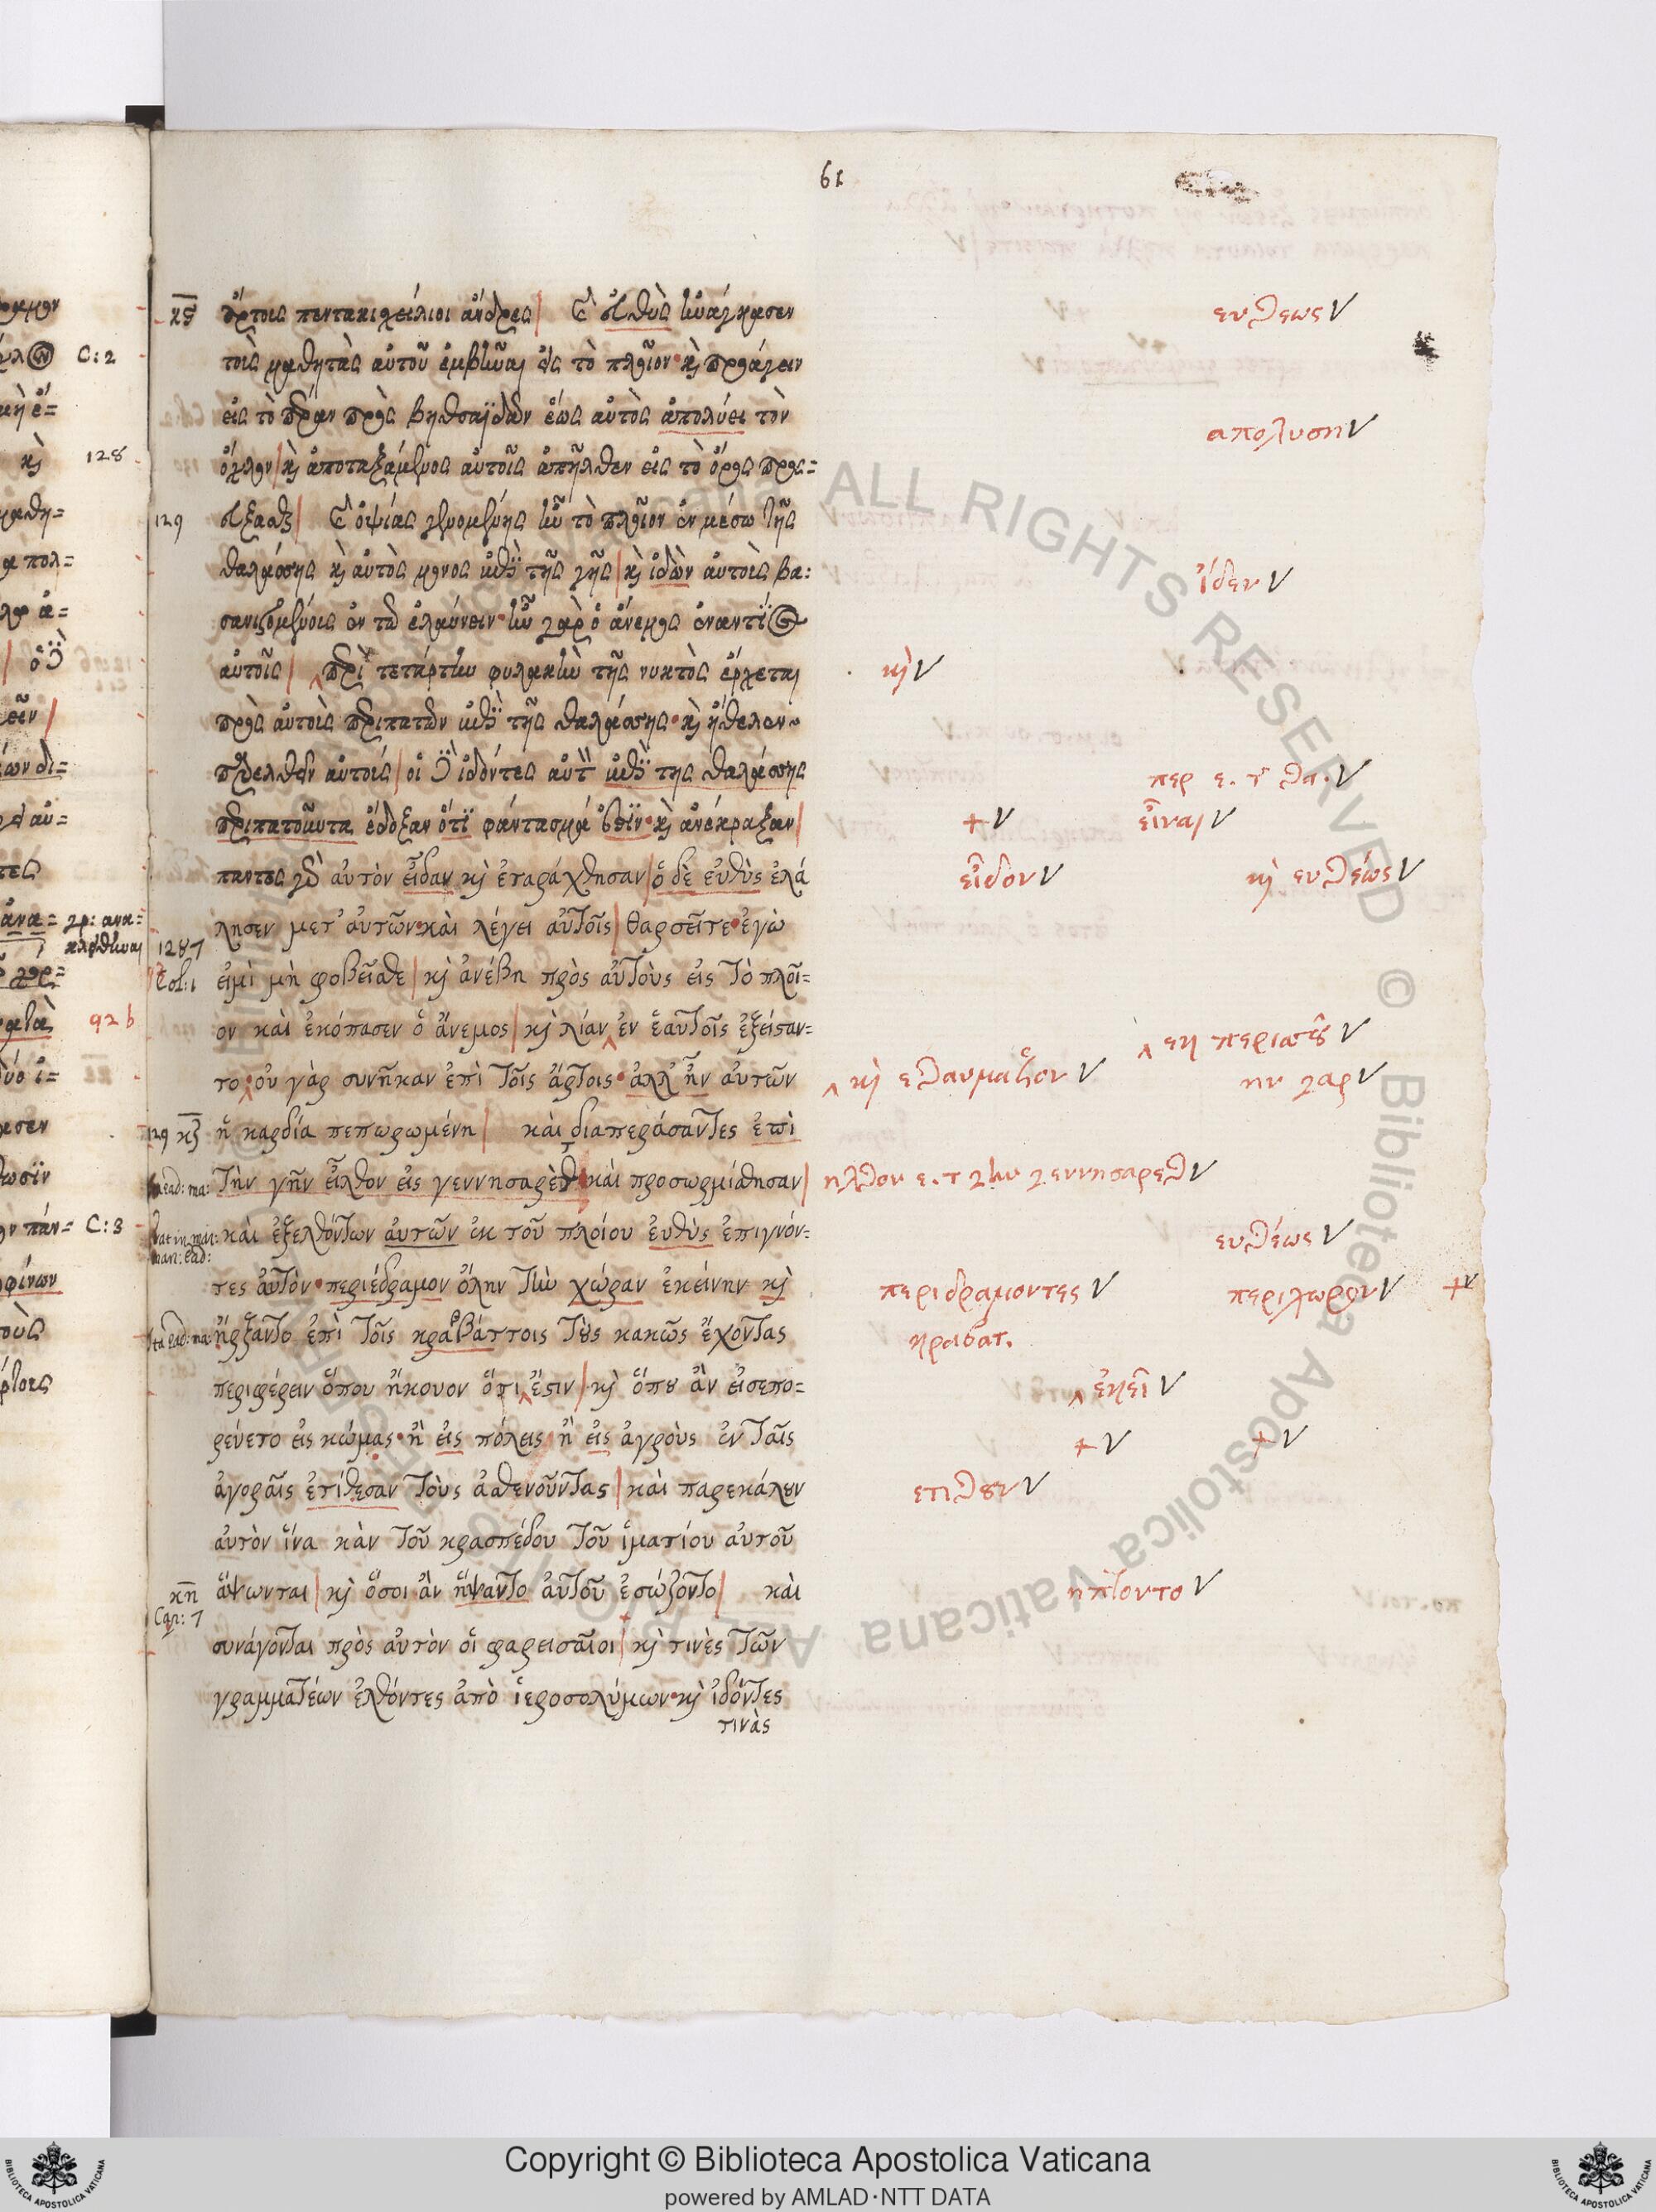 61
κϛ ἄρτους πεντακιχείλιοι ἄνδρες| Καὶ εὐθὺς ἠνάγκασεν ευθεως
τοὺς μαθητὰς αὐτοῦ ἐμβῆναι εἰς τὸ πλοῖον· κὶ προάγειν
εἰς τὸ πέραν πρὸς βηθσαϊδὰν ἕως αὐτὸς ἀπολύει τὸν απολυση
ὄχλον| κὶ ἀποταξάμενος αὐτοῖς ἀπῆλθεν εἰς τὸ ὄρος προς=
129 εύξασθαι| Καὶ ὀψίας γενομένης ἦν τὸ πλοῖον ἐν μέσω τῆς
θαλάσσης κὶ αὐτὸς μόνος ἐπὶ τῆς γῆς| κὶ ἰδὼν αὐτοὺς βα= ἴδεν
σανιζομένους ἐν τῶ ἐλαύνειν· ἦν γὰρ ὁ ἄνεμος ἐναντίος
αὐτοῖς| περὶ τετάρτην φυλακὴν τῆς νυκτὸς ἔρχεται κὶ
πρὸς αὐτοὺς περιπατῶν ἐπὶ τῆς θαλάσσης· κὶ ἤθελεν
παρελθεῖν αὐτούς| οἱ δὲ ἰδόντες αὐτὸν ἐπὶ της θαλάσσης περ ε. τ θα.
περιπατοῦντα ἔδοξαν ὅτι φάντασμά ἐστιν· κὶ ἀνέκραξαν| + εἶναι
παντες γὰρ αὐτὸν εἶδαν κὶ ἐταράχθησαν| ὁ δὲ εὐθὺς ἐλά εἶδον κὶ ευθέως
λησεν μετ' αὐτῶν· καὶ λέγει αὐτοῖς| θαρσεῖτε· ἐγὼ
1287 Col: 1 εἰμὶ μὴ φοβεῖσθε| κὶ ἀνέβη πρὸς αὐτοὺς εἰς τὸ πλοῖ=
ον καὶ ἐκόπασεν ὁ ἄνεμος| κὶ λίαν ἐν ἑαυτοῖς ἐξείσταν= εκ περισσοῦ
το· οὐ γὰρ συνῆκαν ἐπὶ τοῖς ἄρτοις· ἀλλ' ἦν αὐτῶν κὶ εθαυμαζον ην γαρ
129 κζ ἡ καρδία πεπωρωμένη| καὶ διαπεράσαντες ἐπὶ
ead: ma: τὴν γῆν ἦλθον εἰς γεννησαρὲτ καὶ προσωρμίσθησαν| ηλθον ε. τ γην γεννησαρεθ
καὶ ἐξελθόντων αὐτῶν ἐκ τοῦ πλοίου εὐθὺς ἐπιγνόν= ευθέως
man: ead:
τες αὐτὸν· περιέδραμον ὅλην τὴν χώραν ἐκείνην κὶ περιδραμοντες περιχωρον +
ἤρξαντο ἐπὶ τοῖς κραβάττοις τοὺς κακῶς ἔχοντας κραβατ.
περιφέρειν ὅπου ἤκουον ὅτι ἔστιν| κὶ ὅπου ἂν εἰσεπο= ἐκεῖ
ρεύετο εἰς κώμας· ἢ εἰς πόλεις· ἢ εἰς ἀγροὺς ἐν ταῖς + +
ἀγοραῖς ἐτίθεσαν τοὺς ἀσθενοῦντας| καὶ παρεκάλουν ετιθουν
αὐτὸν ἵνα κὰν τοῦ κρασπέδου τοῦ ἱματίου αὐτοῦ
κη ἅψωνται| κὶ ὅσοι ἂν ἥψαντο αὐτοῦ ἐσώζοντο| καὶ ηπτοντο
Cap: 7
συνάγονται πρὸς αὐτὸν οἱ φαρεισαῖοι| κὶ τινὲς τῶν
γραμματέων ἐλθόντες ἀπὸ ἱεροσολύμων· κὶ ἰδόντες
τινὰς
C: 2
128
γρ: ανα=
κλιθῆναι
92 b
C: 3
ALL RIGHTS RESERVED © Biblioteca Apostolica Vaticana
Copyright © Biblioteca Apostolica Vaticana
powered by AMLAD·NTT DATA
BIBLIOTECA APOSTOLICA VATICANA
BIBLIOTECA APOSTOLICA VATICANA